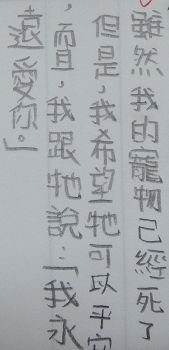 雖然我的寵物已經死了
但是，我希望牠可以平安
，而且，我跟牠說：「我永
遠愛你。」